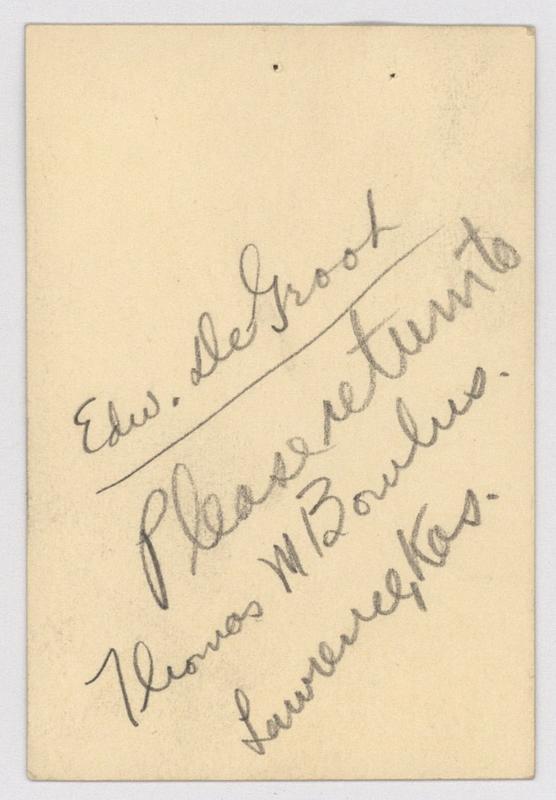 Edw. DeGroot
Please return to
Thomas M Bowlus.
Lawrence, Kas.